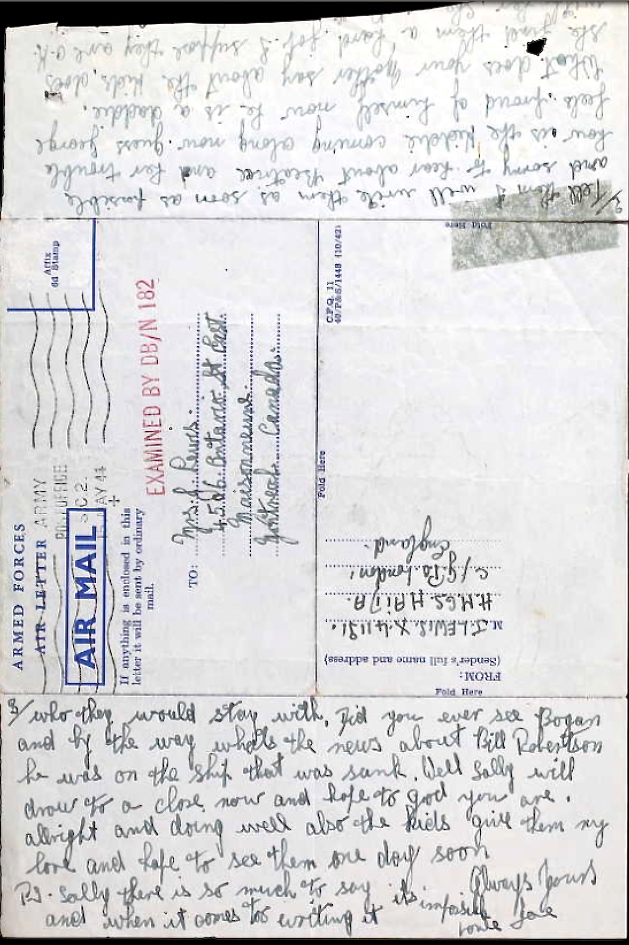 2/ Tell them I will write them as soon as possible
and sorry to hear about Beatrice and her trouble
how is the kiddie coming along now. guess george
feels proud of himself now he is a daddie.
What does your Mother say about the kids, does
she find them a hard job. I suppose they are O.K.
ARMED FORCES
AIR LETTER
AIR MAIL
If anything is enclosed in this
letter it will be sent by ordinary
mail.
Affix
6d Stamp
ARMY
POST OFFICE
S.C.2.
MAY 44
EXAMINED BY DB/N 182
TO:
Mrs. J. Lewis.
4506 Ontario St East
Maisonneuve
Montreal Canada.
Fold Here
Fold Here
Fold Here
C.F.Q. 11
40/P&S/1448 (10/42)
FROM:
(Sender's full name and address)
M J. LEWIS. X.41131.
H.M.C.S. HAIDA.
C/G.P.O. London.
England.
3/ who they would stay with, Did you ever see Bogan
and by the way whats the news about Bill Robertson
he was on the ship that was sunk. Well Sally will
draw to a close now and hope to god you are.
allright and doing well also the kids give them my
love and hope to see them one day soon
Always yours
P.S. Sally there is so much to say its impossible
and when it comes too writing it